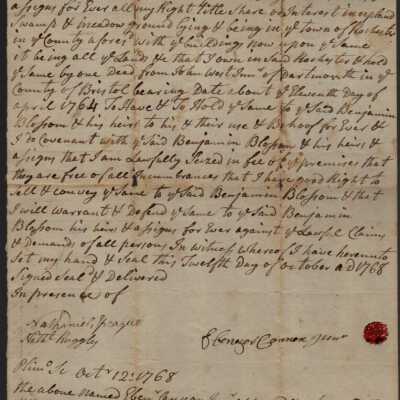 assigns for Ever all my Right title Share or Interest in upland
Swamp & meadow ground lying & being in ye town of Rochester
in ye County aforesd with ye buildings now upon ye Same
it being all ye Lands & that I own in said Rochester & hold
ye Same by one Deed from John West Junr of Dartmouth in ye
County of Bristol bearing Date about ye Eleventh Day of
april 1764 To Have & To Hold ye Same to ye Said Benjamin
Blossom & his heirs to his & their use & Behoof for Ever &
I do Covenant with ye Said Benjamin Blossom & his heirs &
assigns that I am Lawfully Seized in fee of ye premises that
they are free of all Incumbrances that I have good Right to
Sell & convey ye Same to ye Said Benjamin Blossom & that
I will warrant & Defend ye Same to ye Said Benjamin
Blossom his heirs & assigns for Ever against ye Lawfull Claims
& Demands of all persons In witness whereof I have hereunto
Set my hand & Seal this Twelfth Day of October AD 1768
Signed Seald & Delivered
In presence of
Nathaniel Sprague
Nathl Ruggles
Ebenezer Cannon Junr
Plimo Sc Octr 12: 1768
the above Named Ebenr Cannon Jr